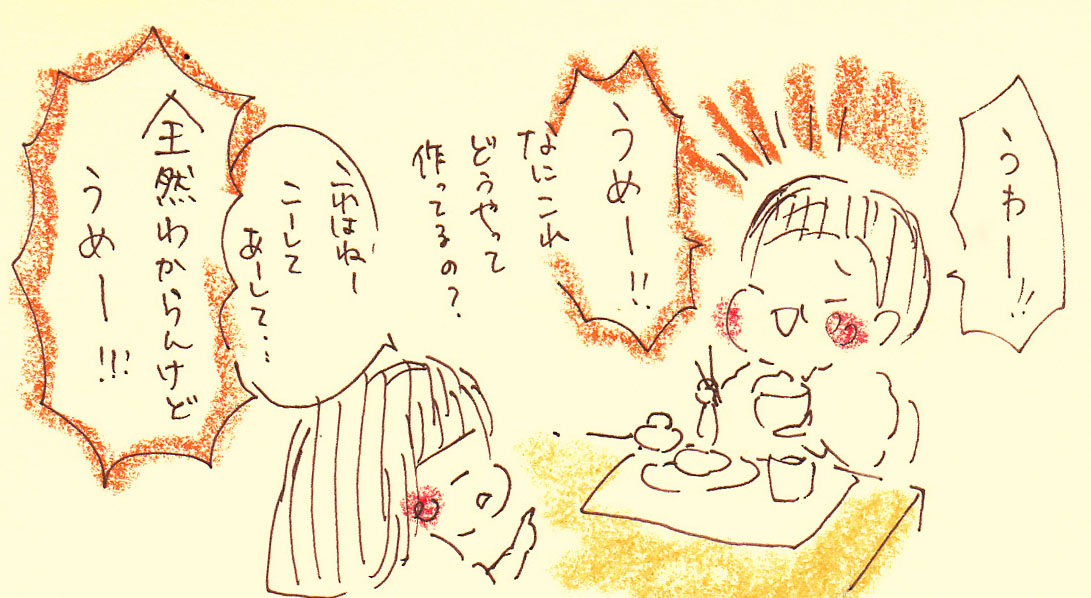 うわー!!
うめー!!
なにこれ
どうやって
作ってるの?
これはねー
こーして
あーして…
全然わからんけど
うめー!!!